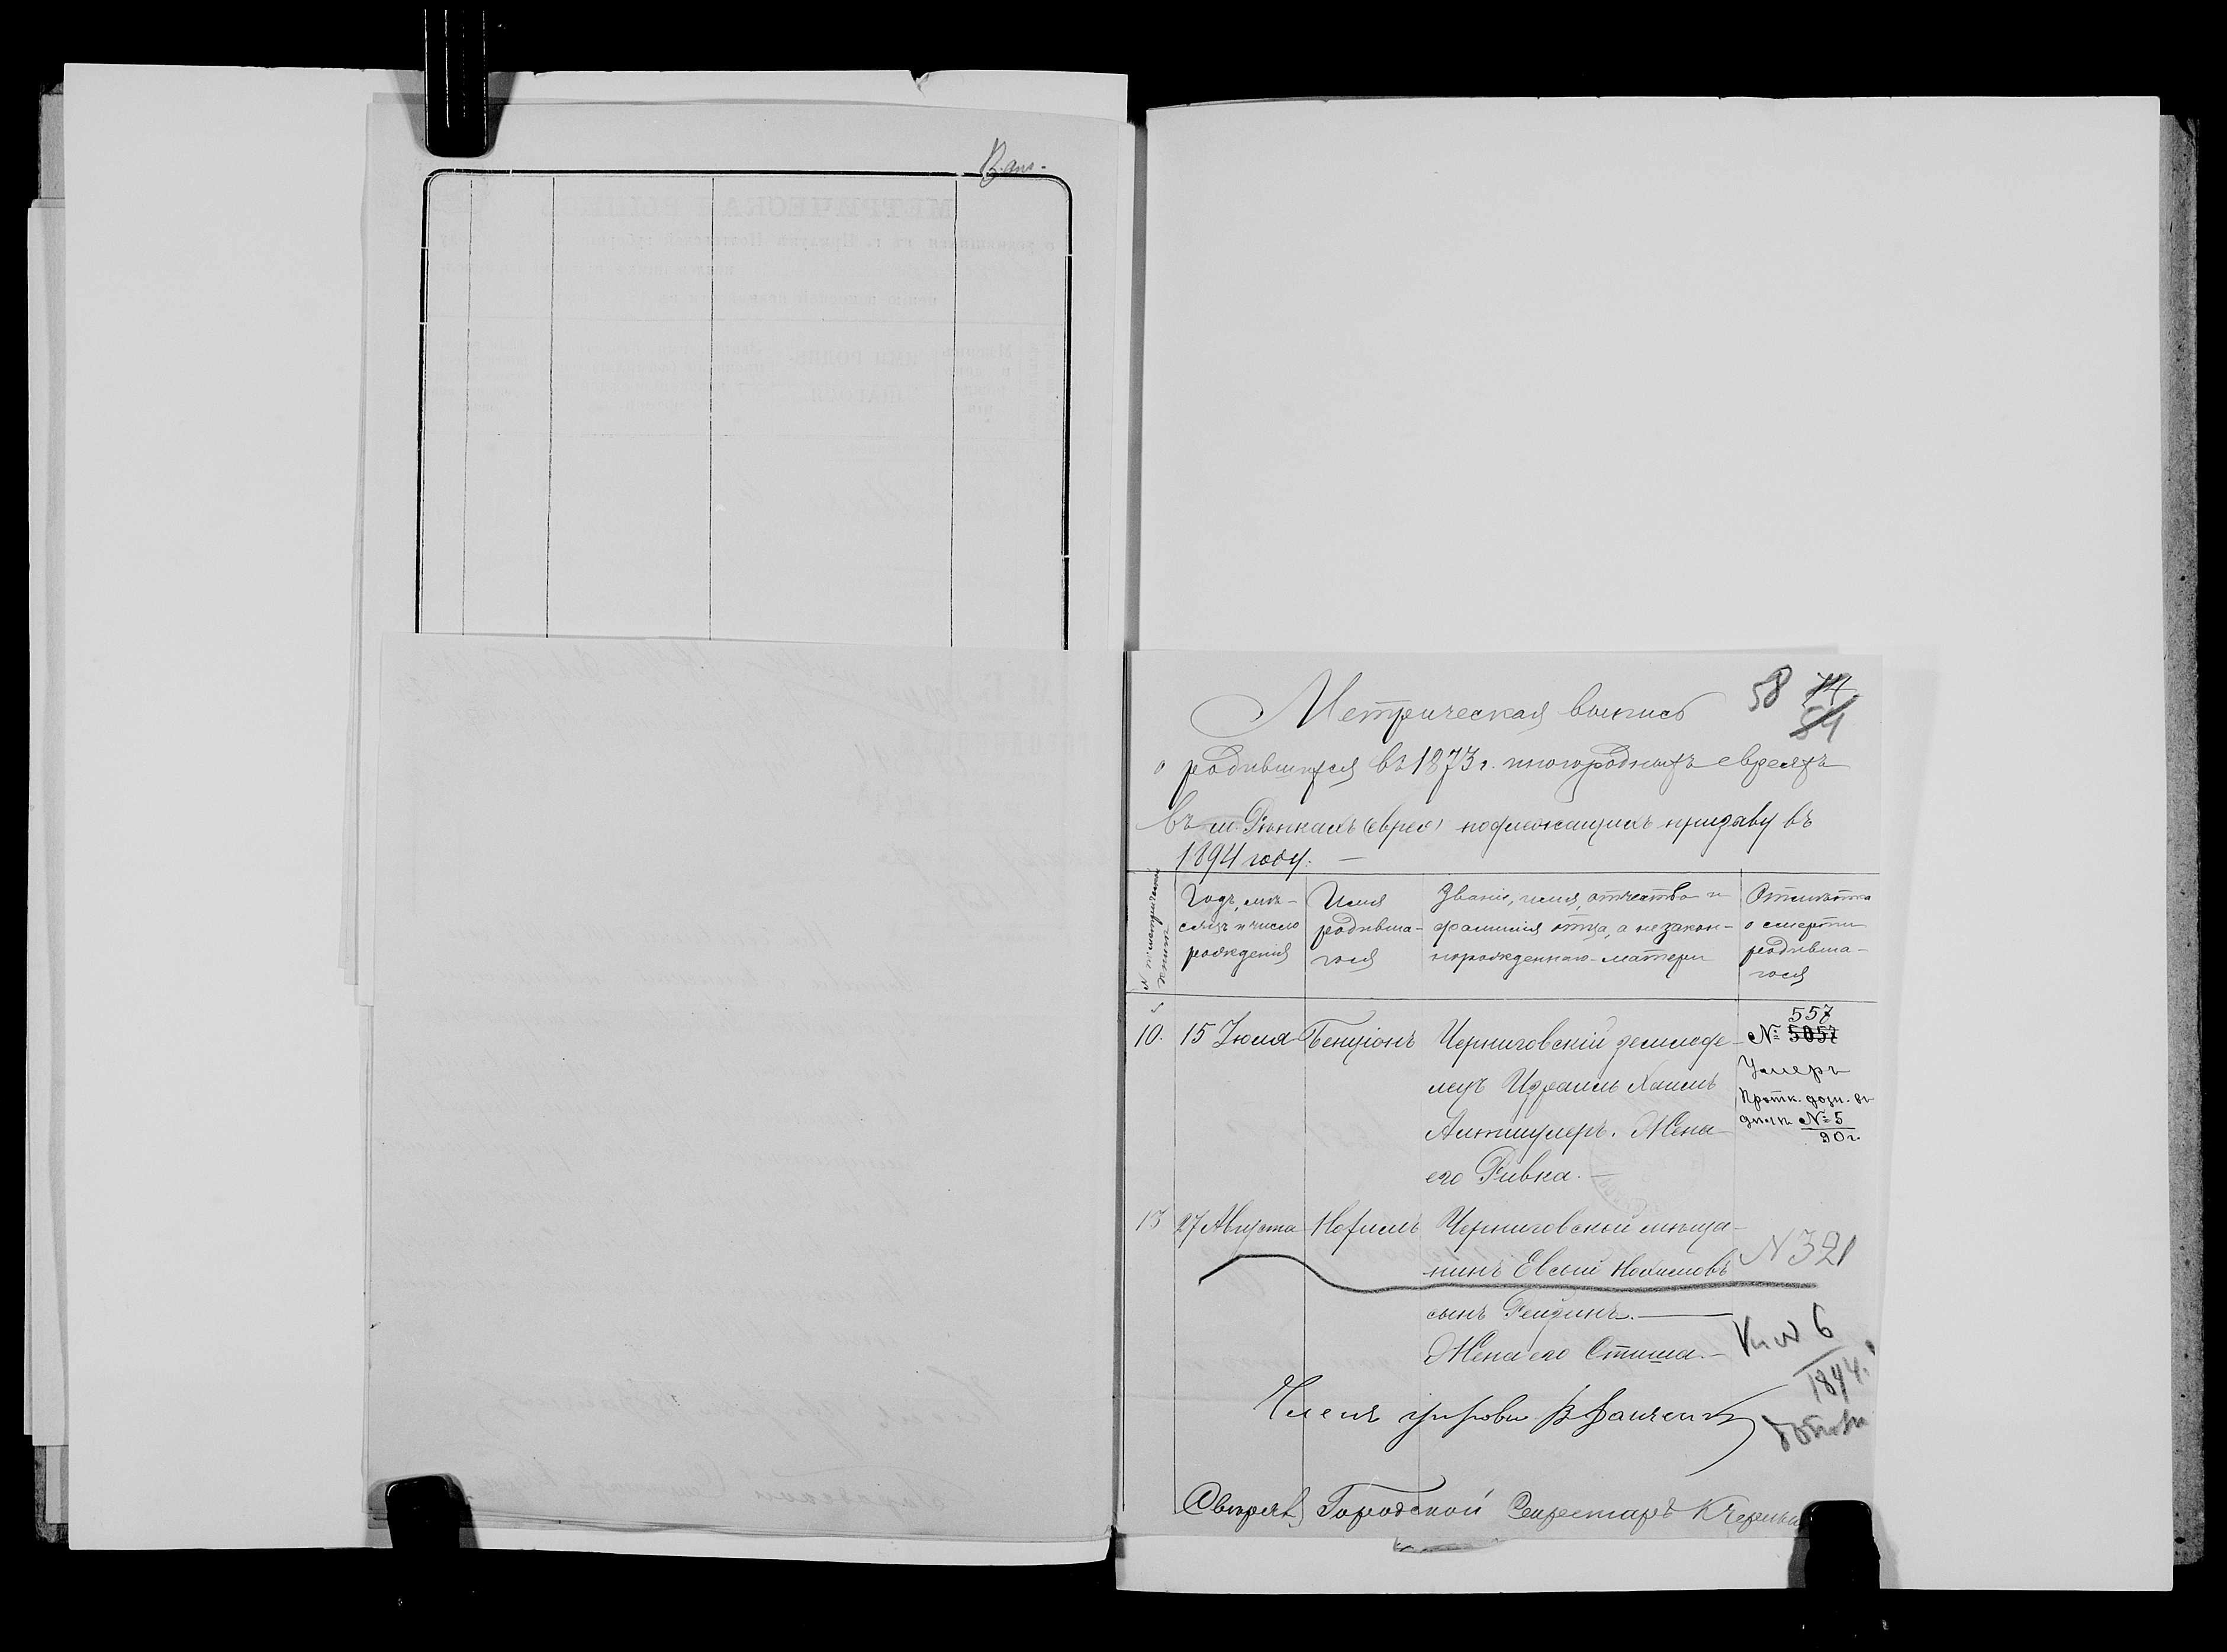 58
Метрическая выпись
о родившихся въ 1873 г. иногородныхъ евреяхъ
въ м. Рынкахъ (еврея) подлежащихъ призыву въ
1894 году. —
№ по метрической книгѣ
Годъ, мѣ-
сяцъ и число
рожденія
Имя
родивша-
гося
Званіе, имя, отчество и
фамилія отца, а незакон-
норожденнаго - матери
Отмѣтка
о смерти
родивша-
гося
10.
15 Іюля
Бенціонъ
Черниговскій землędѣ-
лецъ Израиль Хаимъ
Альтшулеръ. Жена
его Ривка. —
557
№ 5057
Умеръ
дѣлѣ № 5
90 г.
13
27 Августа
Нохимъ
Черниговскій мѣща-
нинъ Евсѣй Нохимовъ
сынъ Рейдинъ. —
Жена его Стиша. —
N 321
N 6
1894.
Членъ управы
Свѣрялъ Городской Секретарь